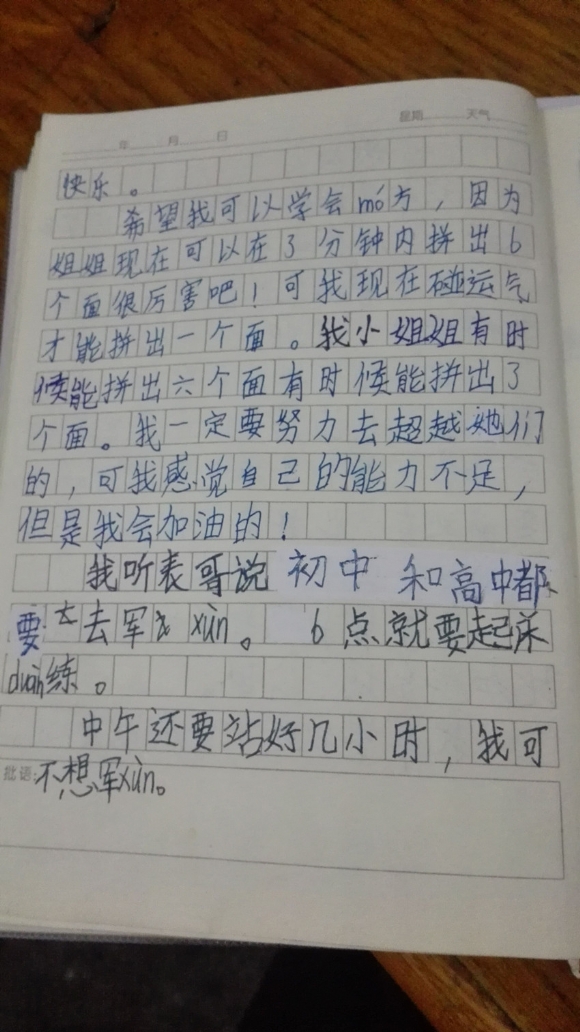 年 月 日 星期 天气
快乐。
希望我可以学会mó方，因为
姐姐现在可以在3分钟内拼出6
个面很厉害吧！可我现在碰运气
才能拼出一个面。我小姐姐有时
候能拼出六个面有时候能拼出3
个面。我一定要努力去超越她们
的，可我感觉自己的能力不足，
但是我会加油的！
我听表哥说初中和高中都
要去军xùn。6点就要起床
duàn练。
中午还要站好几小时，我可
批语：不想军xùn。